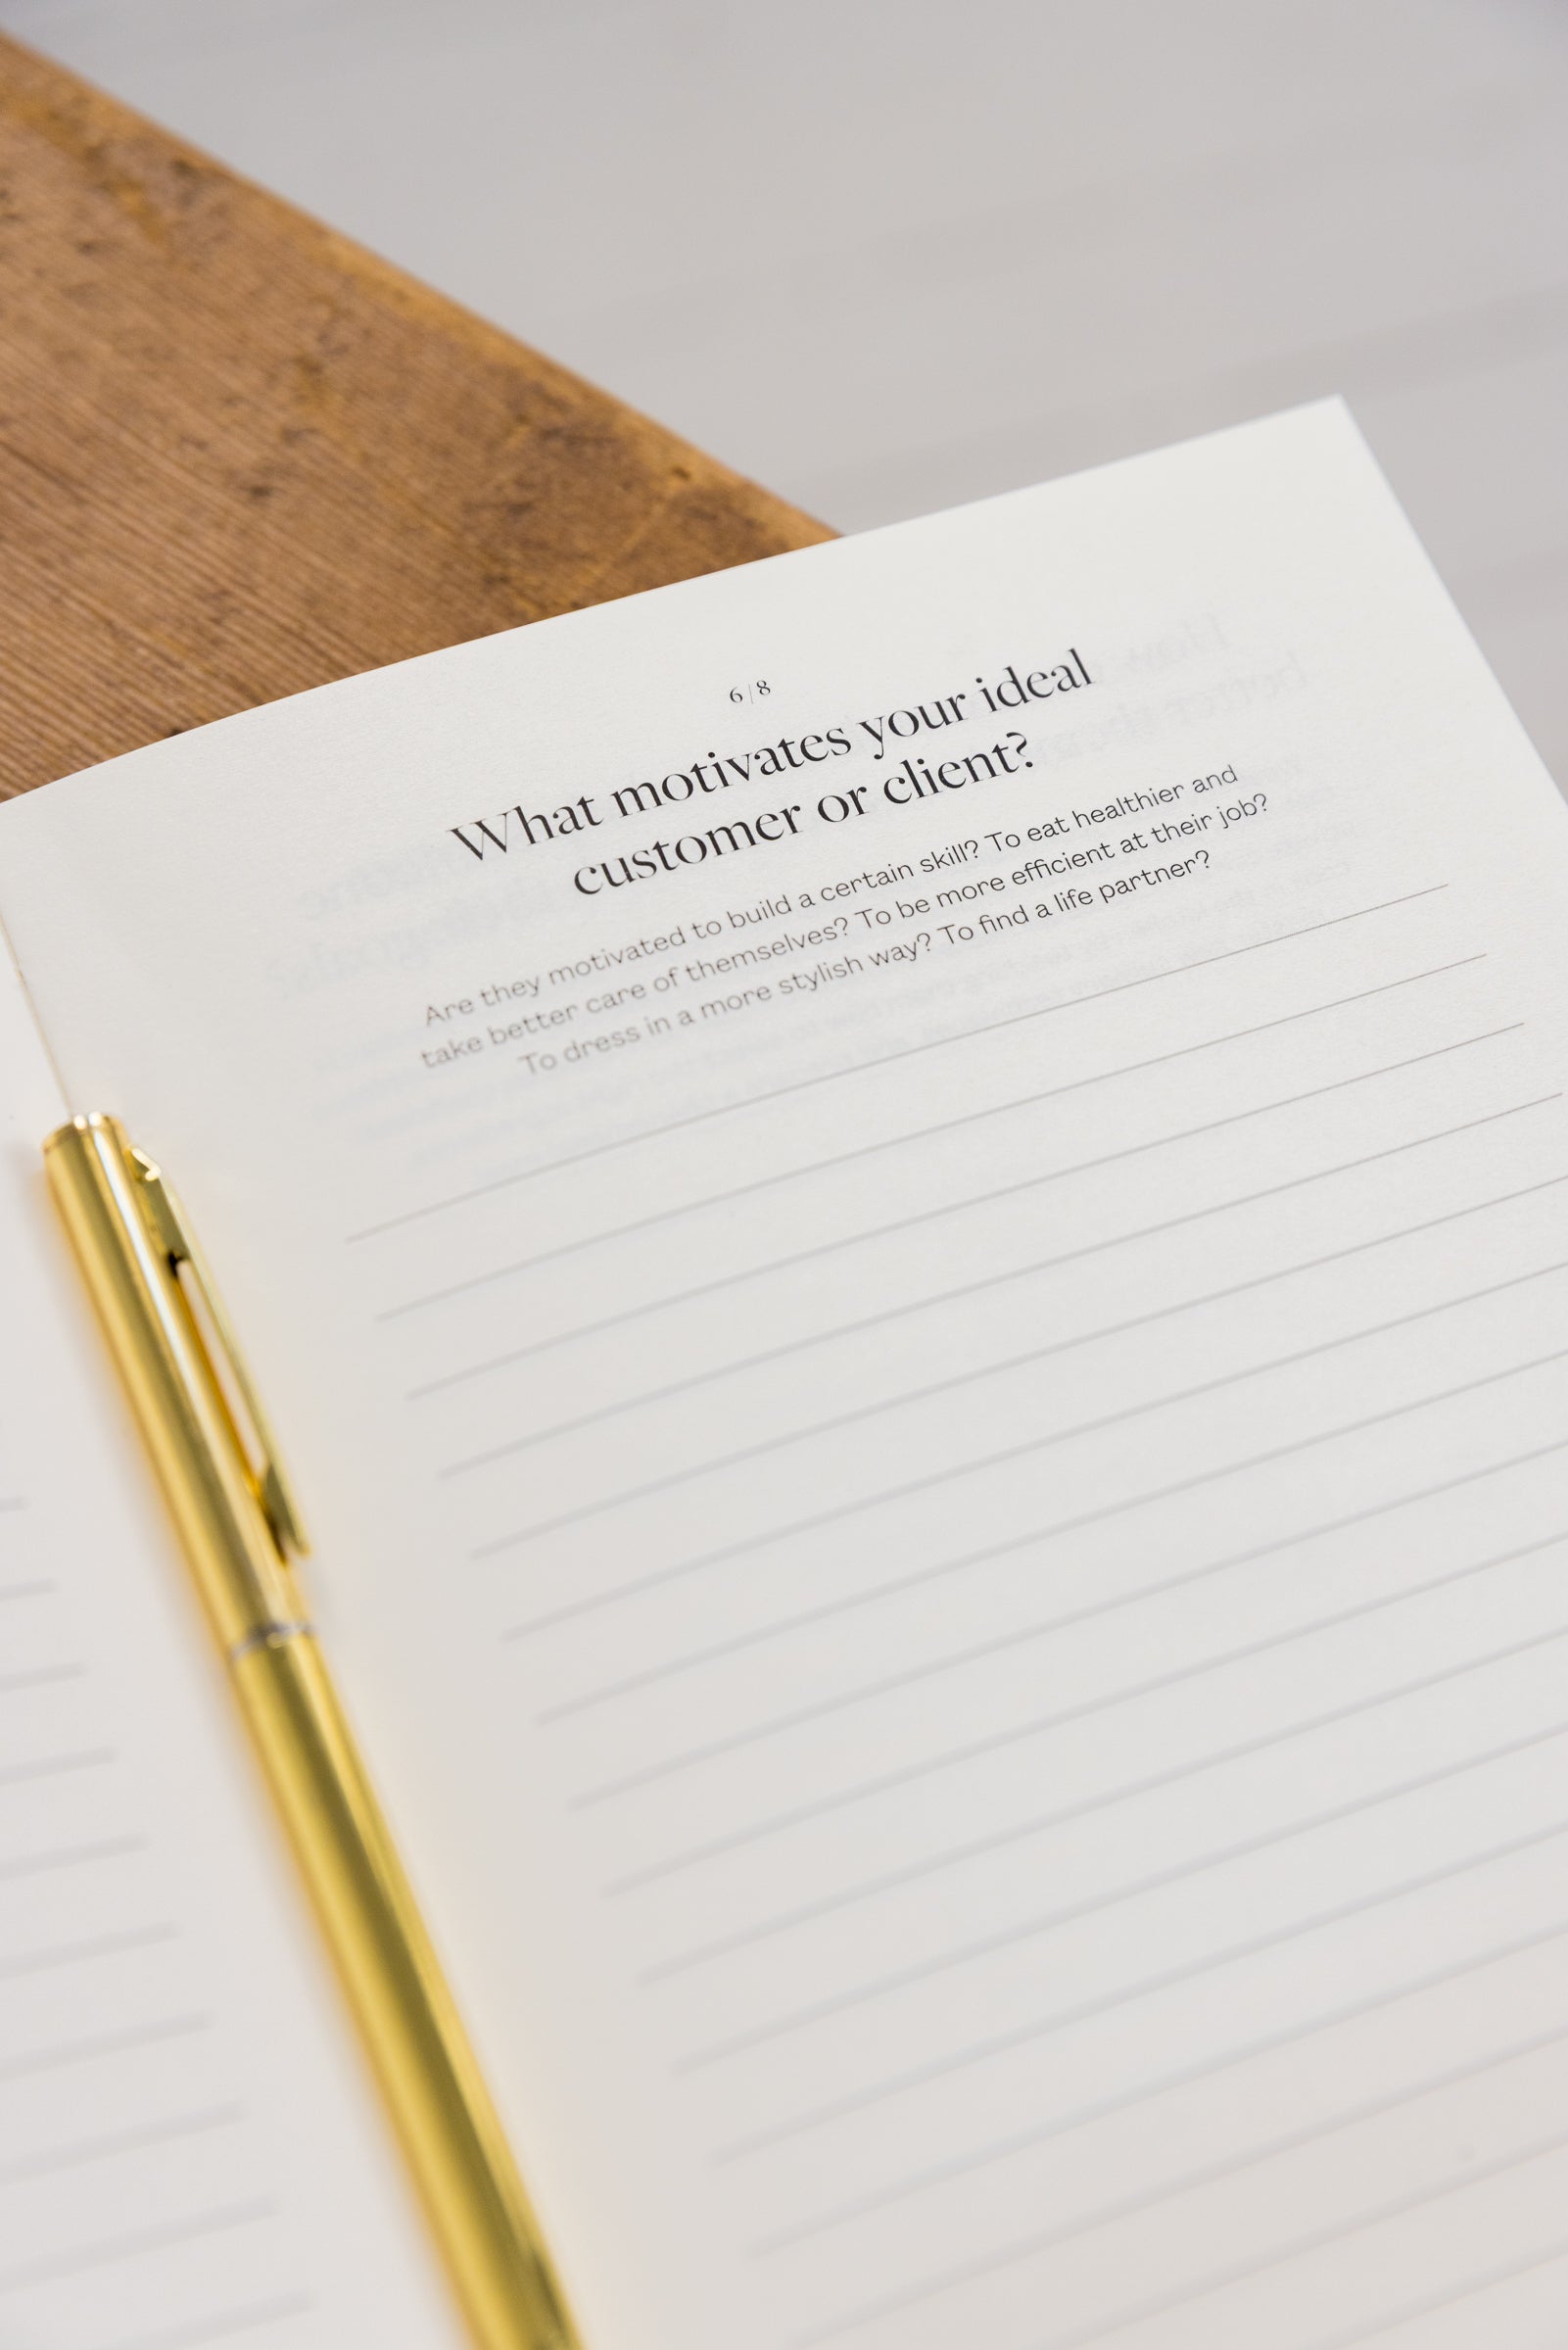 6/8
What motivates your ideal
customer or client?
Are they motivated to build a certain skill? To eat healthier and
take better care of themselves? To be more efficient at their job?
To dress in a more stylish way? To find a life partner?